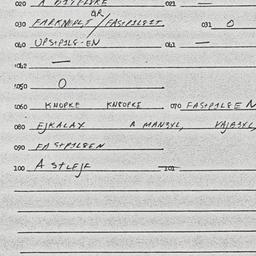 020 A 021 —
OR
030 FARKNEPLT / FASTPILEIT 031 O
040 UPSTPILE-EN 041 —
042 —
050 O
060 KNOPKE KNEOPKE 070 FASTPILEEN
080 EJKALAX A MANSXL, VAJASXL,
090 FASTPILEEN
100 A STLEJE 101